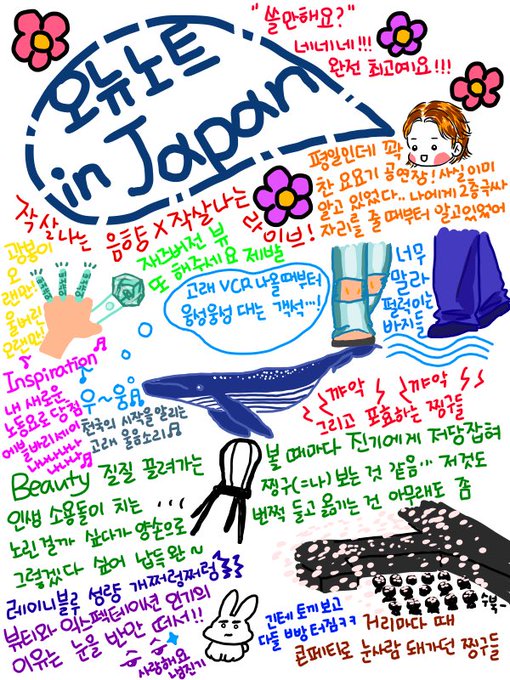 오뉴노트
in Japan
"쓸만해요?"
네네네!!!
완전 최고예요!!!
평일인데 꽉
찬 요요기 공연장! 사실 이미
알고 있었다.. 나에게 2층 극싸
자리를 줄 때부터 알고있었어
작살나는 음향 X 작살나는
라이브!
재즈버전 뷰
또 해주세요 제발
광봉이
오
랜만!
울버린
오랜만!
고래 VCR 나올 때부터
웅성웅성 대는 객석…!
너무
말라
펄럭이는
바지들
Inspiration
내 새로운
노동요로 당첨
에쁠바리세이
내내내내
나나나
우~웅
천국의 시작을 알리는
고래 울음소리
꺄악 꺄악
그리고 포효하는 찡구들
Beauty 질질 끌려가는
인생 소용돌이 치는
노린걸까 싶다가 양손으로
그렇겠다 싶어 납득완~
볼 때마다 진기에게 저당잡혀
찡구(=나) 보는 것 같음… 저것도
번쩍 들고 옮기는 건 아무래도 좀
레이니블루 성량 개쩌렁쩌렁
뷰티와 익스펙테이션 인기의
이유는 눈을 반만 떠서!!
슴슴
사랑해요
냄진기
긴테 토끼 보고
다들 빵 터짐ㅋㅋ
수북-
거리마다 때
콘페티로 눈사람 돼가던 찡구들